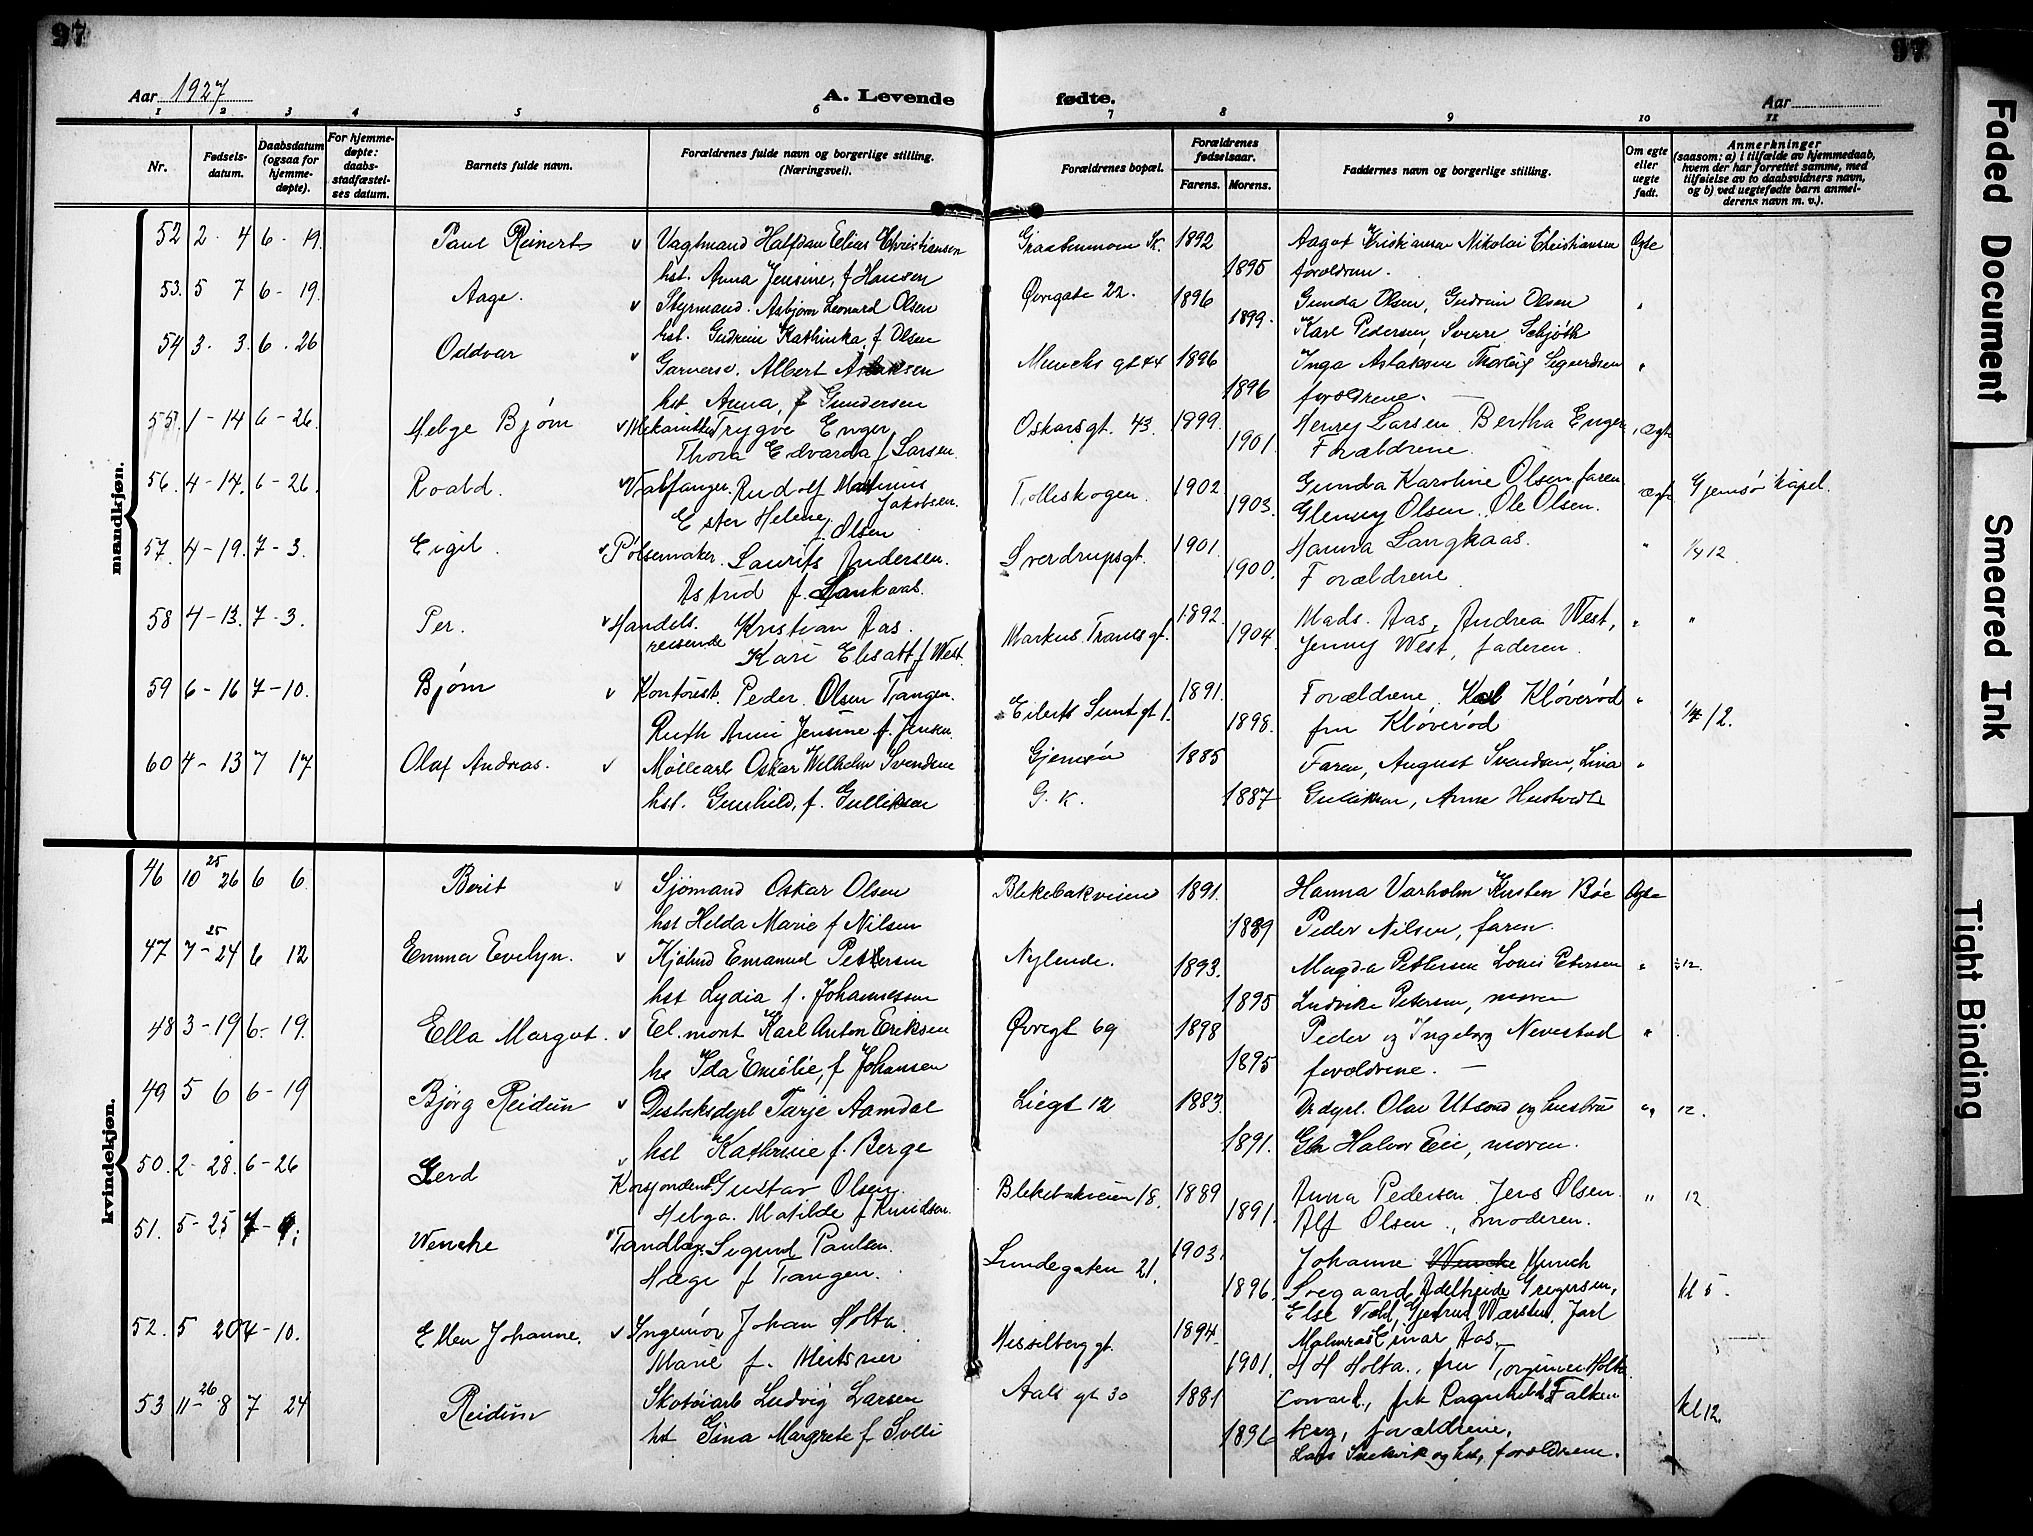 97
97
Aar 1927
A. Levende fødte.
Aar
1 2 3 4 5 6 7 8 9 10 11
Nr.
Fødsels-
datum.
Daabsdatum
(ogsaa for
hjemme-
døpte).
For hjemme-
døpte:
daabs-
stadfæstel-
ses datum.
Barnets fulde navn.
Forældrenes fulde navn og borgerlige stilling.
(Næringsvei).
Forældrenes bopæl.
Forældrenes
fødselsaar.
Farens. Morens.
Faddernes navn og borgerlige stilling.
Om egte
eller
uegte
født.
Anmerkninger
(saasom: a) i tilfælde av hjemmedaab,
hvem der har forrettet samme, med
tilføielse av to daabsvidners navn,
og b) ved uegtefødte barn anmel-
derens navn m. v.).
mandkjøn.
52 2 - 4 6 - 19 Paul Reinert v Vagtmand Halfdan Elias Christiansen 1892 Aagot Kristiansen Nikolai Christiansen Egte
hst. Anna Jensine, f Hansen 1895 foreldrene.
53. 5 7 6 - 19. Aage. v Styrmand. Asbjørn Leonard Olsen Øvregate 22. 1896 Gunda Olsen, Gudrun Olsen "
hst. Gudrun Kathinka, f Olsen 1899. Karl Pedersen, Sverre Schjøth
54 3. 3. 6. 26 Oddvar v Garverse. Albert Aslaksen Munchs gt 44 1896 Inga Aslaksen Thorleif Sigurdsen "
hst Anna, f Gundersen 1896 foreldrene. —
55. 1 - 14 6 - 26. Helge Bjørn v Trygve Enger Oskarsgt. 43. 1999. Henry Larsen Bertha Enger "ægte
Thora Edvarda f Larsen. 1901. Forældrene.
56. 4 - 14. 6 - 26. Roald. v Valfanger. Rudolf Martinius Jakobsen. Tolleskogen. 1902. Gunda Karoline Olsen faren ægte Gjemsø Kapel.
Ester Helene f Olsen 1903. Glenny Olsen. Ole Olsen.
57. 4 - 19. 7 - 3. Eigil. v Pølsemaker. Laurits Andersen. Sverdrupsgt. 1901. Hanna Langkaas. " 1/4 12
Astrid f. Lankaas. 1900. Forældrene
58 4 - 13. 7 - 3. Per. v Handels. reisende Kristian Aas. Markus Tranes gt. 1892. Mads. Aas, Andrea West, " "
Kari Elisabt f West. 1904. Jenny West, faderen.
59 6 - 16 7 - 10. Bjørn v Kontorist. Peder Olsen Tangen. Eilerts Sunt gt 1. 1891. Forældrene. Karl Kløverød "
Ruth Anni Jensine f. Jensen. 1898. fru Kløverød 12.
60 4 - 13 7 17 Olaf Andreas. v Møllearb Oskar Wilhelm Svendsen Gjemsøn 1885 Faren, August Svendsen, Lina "
hst. Gunhild, f. Gulliksen G. K. 1887 Gulliksen, Anne Hustvedt
kvindekjøn.
46 10 25 26 6 6 Berit v Sjømand Oskar Olsen Blekebakveien 1891. Hanna Varholm Kirsten Bøe Egte
hst Helda Marie f Nilsen 1889 Peder Nilsen, faren.
47 7 - 25 24 6 12 Emma Evelyn. v Kjøbmd Emanuel Pettersen Nylende. 1893. Magda Pettersen Louis Petersen " 12.
hst Lydia f. Johannessen 1895 Ludvike Petersen, moren
48 3 - 19 6 - 19. Ella Margot. v El. mont Karl Anton Eriksen Øvregt 69 1898 Peder og Ingeborg Nevestad "
hs Ida Emelie, f Johansen 1895 foreldrene. —
49 5 6 6 - 19 Bjørg Reidun v Destriksdyrl Tarje Aamdal Liegt 12 1883. Drdyrl. Olav Utsond og hustru " 12.
hst Kathrine f. Berge 1891. Gbr Halvor Eie, moren.
50. 2 - 28. 6 - 26 Gerd v Korspondent Gustav Olsen. Blekebakveien 18. 1889 Anna Pedersen. Jens Olsen. " 12
Helga. Matilde f Knudsen. 1891. Alf Olsen., moderen.
51. 5 - 25 7 - Wenche v Tandlæge Sigurd Paulsen. Lundegaten 21. 1903. Johanne Wenche Munch
Hæge f Tangen. 1896. Adelheide Gregersen, kl 5.
Else Gjertrud Jarl
52. 5 20 7 - 10. Ellen Johanne. v Ingeniør Johan Holta. Hesselberg gt. 1894. Einar Aas.
Marie f. Meitsner 1901. H H Holta., fru Holta
53 11 - 26 8 7 24 Reidun Skotøiarb Ludvig Larsen Aals gt 30 1881 frk Ragnhild Falken kl 12.
hst Gina Margrete f Solli 1896 berg, forældrene,
Lars og hst, foreldrene.
Faded Document
Smeared Ink
Tight Binding